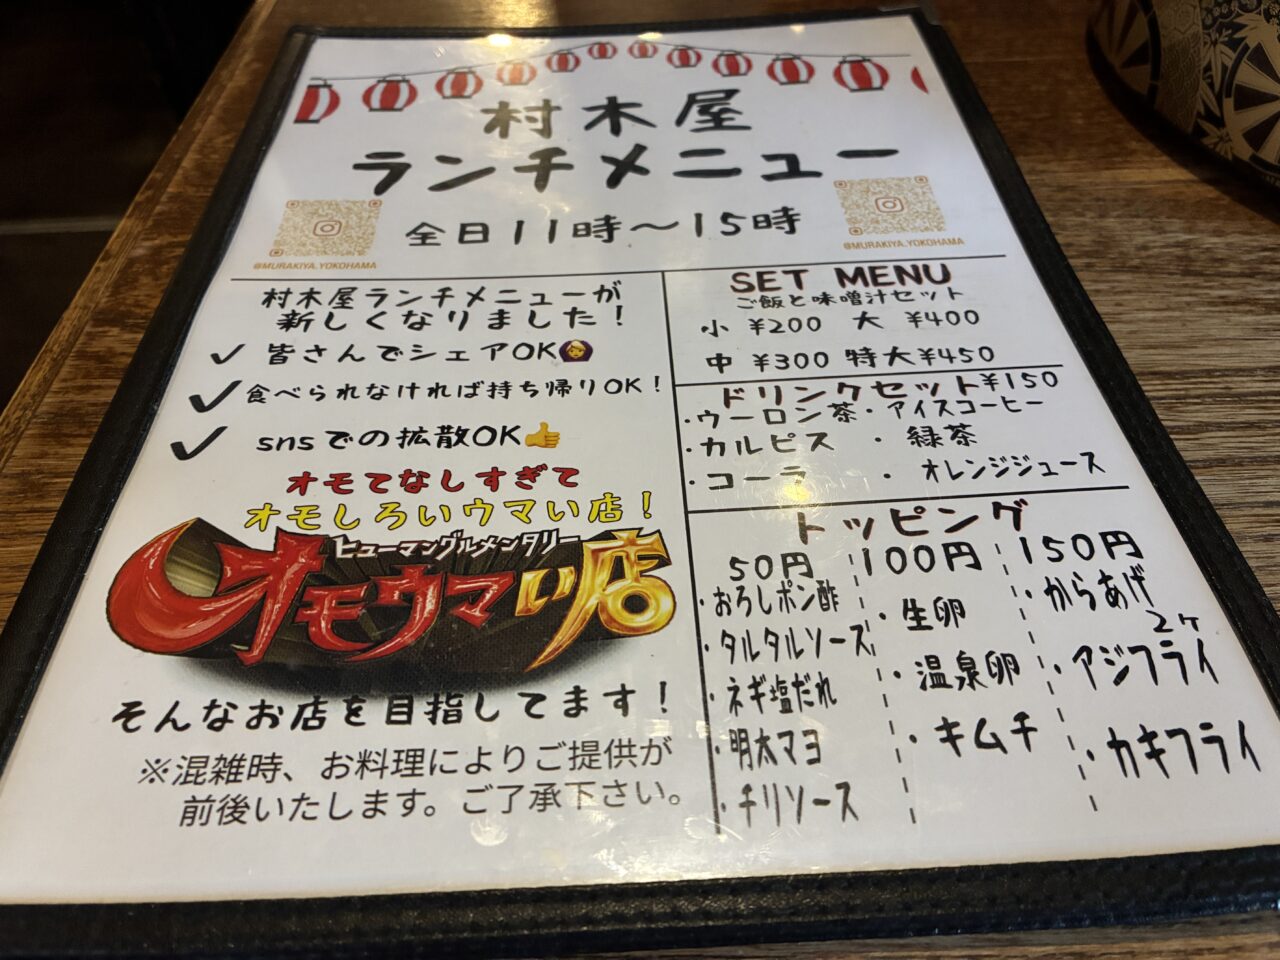 村木屋
ランチメニュー
全日11時～15時
@MURAKIYA.YOKOHAMA
@MURAKIYA.YOKOHAMA
村木屋ランチメニューが
新しくなりました！
✓ 皆さんでシェアOK🙆
✓ 食べられなければ持ち帰りOK！
✓ snsでの拡散OK👍
オモてなしすぎて
オモしろいウマい店！
ヒューマングルメンタリー
オモウマい店
そんなお店を目指してます！
※混雑時、お料理によりご提供が
前後いたします。ご了承下さい。
SET MENU
ご飯と味噌汁セット
小 ¥200 大 ¥400
中 ¥300 特大¥450
ドリンクセット¥150
・ウーロン茶・アイスコーヒー
・カルピス ・緑茶
・コーラ ・オレンジジュース
トッピング
50円
・おろしポン酢
・タルタルソース
・ネギ塩だれ
・明太マヨ
・チリソース
100円
・生卵
・温泉卵
・キムチ
150円
・からあげ
2ヶ
・アジフライ
・カキフライ